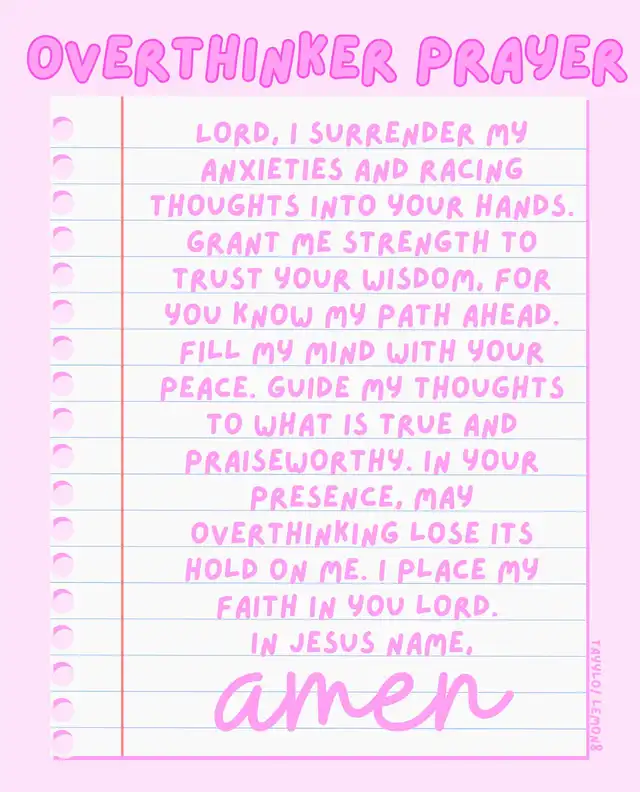 OVERTHINKER PRAYER
LORD, I SURRENDER MY
ANXIETIES AND RACING
THOUGHTS INTO YOUR HANDS.
GRANT ME STRENGTH TO
TRUST YOUR WISDOM, FOR
YOU KNOW MY PATH AHEAD.
FILL MY MIND WITH YOUR
PEACE. GUIDE MY THOUGHTS
TO WHAT IS TRUE AND
PRAISEWORTHY. IN YOUR
PRESENCE, MAY
OVERTHINKING LOSE ITS
HOLD ON ME. I PLACE MY
FAITH IN YOU LORD.
IN JESUS NAME,
amen
TAYYLO/ LEMON8